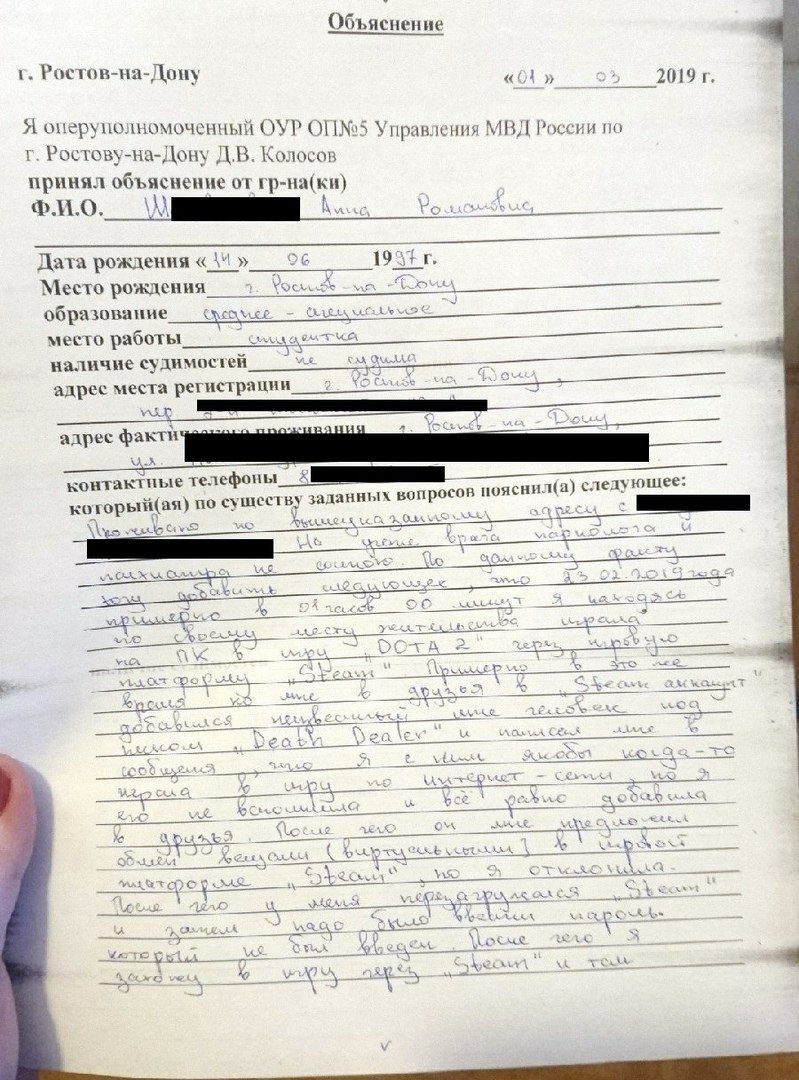 Объяснение
г. Ростов-на-Дону «01» 03 2019 г.
Я оперуполномоченный ОУР ОП№5 Управления МВД России по
г. Ростову-на-Дону Д.В. Колосов
принял объяснение от гр-на(ки)
Ф.И.О. Ш Анна Романовна
Дата рождения «14» 06 1997 г.
Место рождения г. Ростов-на-Дону
образование средне-специальное
место работы студентка
наличие судимостей не судима
адрес места регистрации г. Ростов-на-Дону,
пер
адрес фактического проживания г. Ростов-на-Дону,
ул.
контактные телефоны 8
который(ая) по существу заданных вопросов пояснил(а) следующее:
Проживаю по вышеуказанному адресу с
На учете врача нарколога и
психиатра не состою. По данному факту
хочу добавить следующее, что 23.02.2019 года
примерно в 01 часов 00 минут я находясь
по своему месту жительства играла
на ПК в игру „DOTA 2" через игровую
платформу „Steam" Примерно в это же
время ко мне в друзья в „Steam аккаунт"
добавился неизвестный мне человек под
ником „Death Dealer" и написал мне в
сообщения, что я с ним якобы когда-то
играла в игру по интернет-сети, но я
его не вспомнила и всё равно добавила
в друзья. После чего он мне предложил
обмен вещами (виртуальными) в игровой
платформе „Steam", но я отклонила.
После чего у меня перезагружался „Steam"
и затем надо было ввести пароль.
который не был введен. После чего я
захожу в игру через „Steam" и там